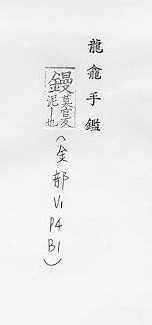 龍龕手鑑
鏝莫官反泥丨也
(金部
V1
P4
B1)